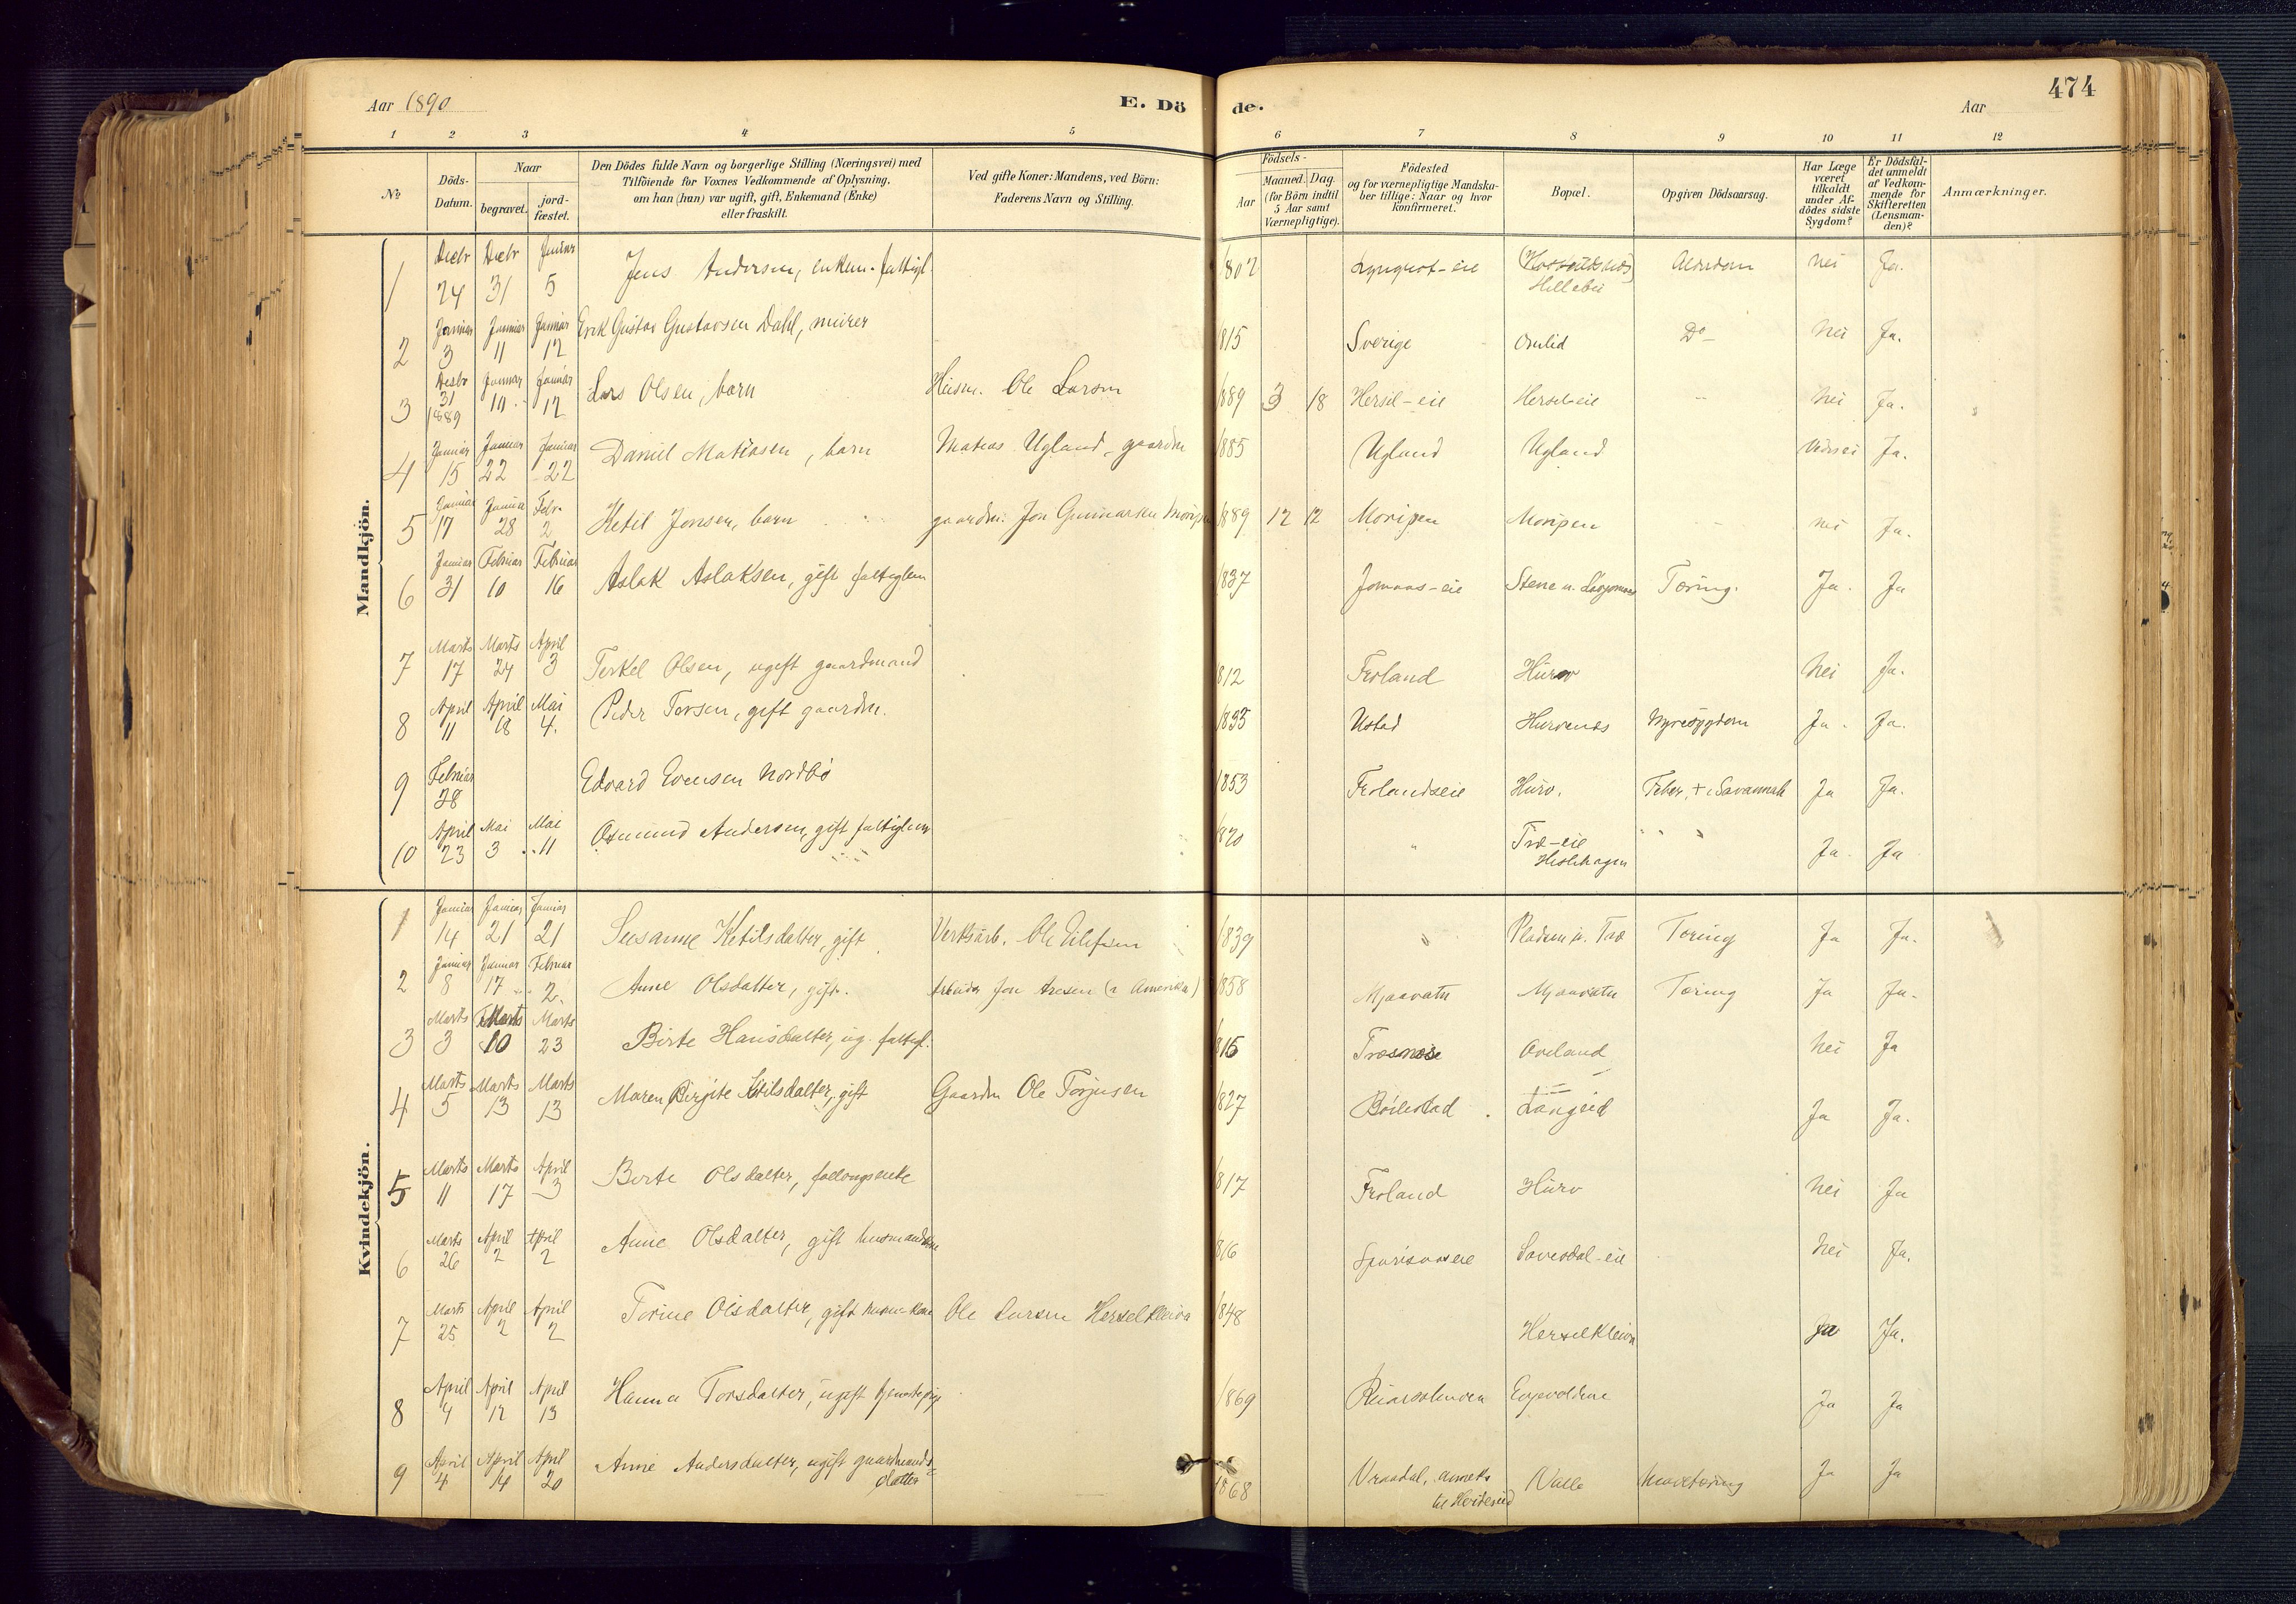 474
Aar 1890 E. Dö de. Aar
1 2 3 4 5 6 7 8 9 10 11 12
No
Döds-Datum.
Naar
begravet.
jord-fæstet.
Den Dödes fulde Navn og borgerlige Stilling (Næringsvei) med
Tilföiende for Voxnes Vedkommende af Oplysning,
om han (hun) var ugift, gift, Enkemand (Enke)
eller fraskilt.
Ved gifte Koner: Mandens, ved Börn:
Faderens Navn og Stilling.
Födsels-
Aar
Maaned. Dag.
(for Börn indtil
5 Aar samt
Værnepligtige).
Födested
og for værnepligtige Mandska-
ber tillige: Naar og hvor
konfirmeret.
Bopæl.
Opgiven Dödsaarsag.
Har Læge
været
tilkaldt
under Af-
dödes sidste
Sygdom?
Er Dödsfal-
det anmeldt
af Vedkom-
mende for
Skifteretten
(Lensman-
den)?
Anmærkninger.
Mandkjön.
1 Decbr 24 Decbr 31 Januar 5 Jens Andersen, enkem. fattigl. 1802 Alderdom Nei Ja.
2 Januar 3 Januar 11 Januar 12 Erik Gustav Gustavsen Dahl, murer 1815 Sverige Do Nei Ja.
3 Decbr 31 1889 Januar 10 Januar 12 Lars Olsen, barn Husm. Ole Larsen 1889 3 18 Hersel-eie Hersel-eie Nei Ja.
4 Januar 15 Januar 22 Januar 22 Daniel Matiasen, barn Matias Ugland, gaardm 1885 Ugland Ugland Ja.
5 Januar 17 Januar 28 Febr. 2 Ketil Jonsen, barn gaardm. Jon Gunnarsen 1889 12 12 Moripen Moripen nei Ja.
6 Januar 31 Februar 10 Februar 16 Aslak Aslaksen, gift fattiglem 1837 Jomaas-eie Stene u. Tæring. Ja. Ja
7 Marts 17 Marts 24 April 3 Terkel Olsen, ugift gaardmand 1812 Froland Hurv Nei Ja.
8 April 11 April 18 Mai 4. Peder Torsen, gift gaardm. 1835 Ustad Hurvenes Nyresygdom Ja. Ja.
9 Februar 28 Edvard Evensen Nordbö 1853 Frolandseie Hurv. Feber, + i Savannah Ja Ja.
10 April 23 Mai 3 Mai 11 Osmund Andersen, gift fattiglem 1820 " Træ-eie " " Ja. Ja
Kvindekjön.
1 Januar 14 Januar 21 Januar 21 Susanne Ketilsdatter, gift Verksarb. Ole 1839 " Pladsen u. Træ Tæring Ja Ja.
2 Januar 8 Januar 17 Februar 2. Anne Olsdatter, gift. Arbeider Jon Aresen (i Amerika) 1858 Mjaavatn Mjaavatn Tæring Ja Ja.
3 Marts 3 Marts 10 Marts 23 Birte Hansdatter, ug. fattigl. 1816 Aveland Nei Ja
4 Marts 5 Marts 13 Marts 13 Maren Birgite Ketilsdatter, gift Gaardm Ole Torjusen 1827 Böilestad Langeid Ja Ja.
5 Marts 11 Marts 17 April 3 Berte Olsdatter, 1817 Froland Hurv Nei Ja
6 Marts 26 April 2 April 2 Anne Olsdatter, gift 1816 Lovesdal-eie Nei Ja.
7 Marts 25 April 2 April 2 Torine Olsdatter, gift Ole Larsen Herselkleiva 1848 Herselkleiva Ja Ja.
8 April 4 April 12 April 13 Hanna Torsdatter, ugift tjenestepige 1869 Ja Ja
9 April 4 April 14 April 20 Anne Andersdatter, ugift gaardmands-
datter 1868 Vraadal, anneks
til Hvideseid Valle Ja Ja